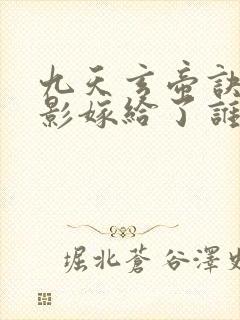 九天玄帝訣
影嫁給了誰
堀北蒼谷澤